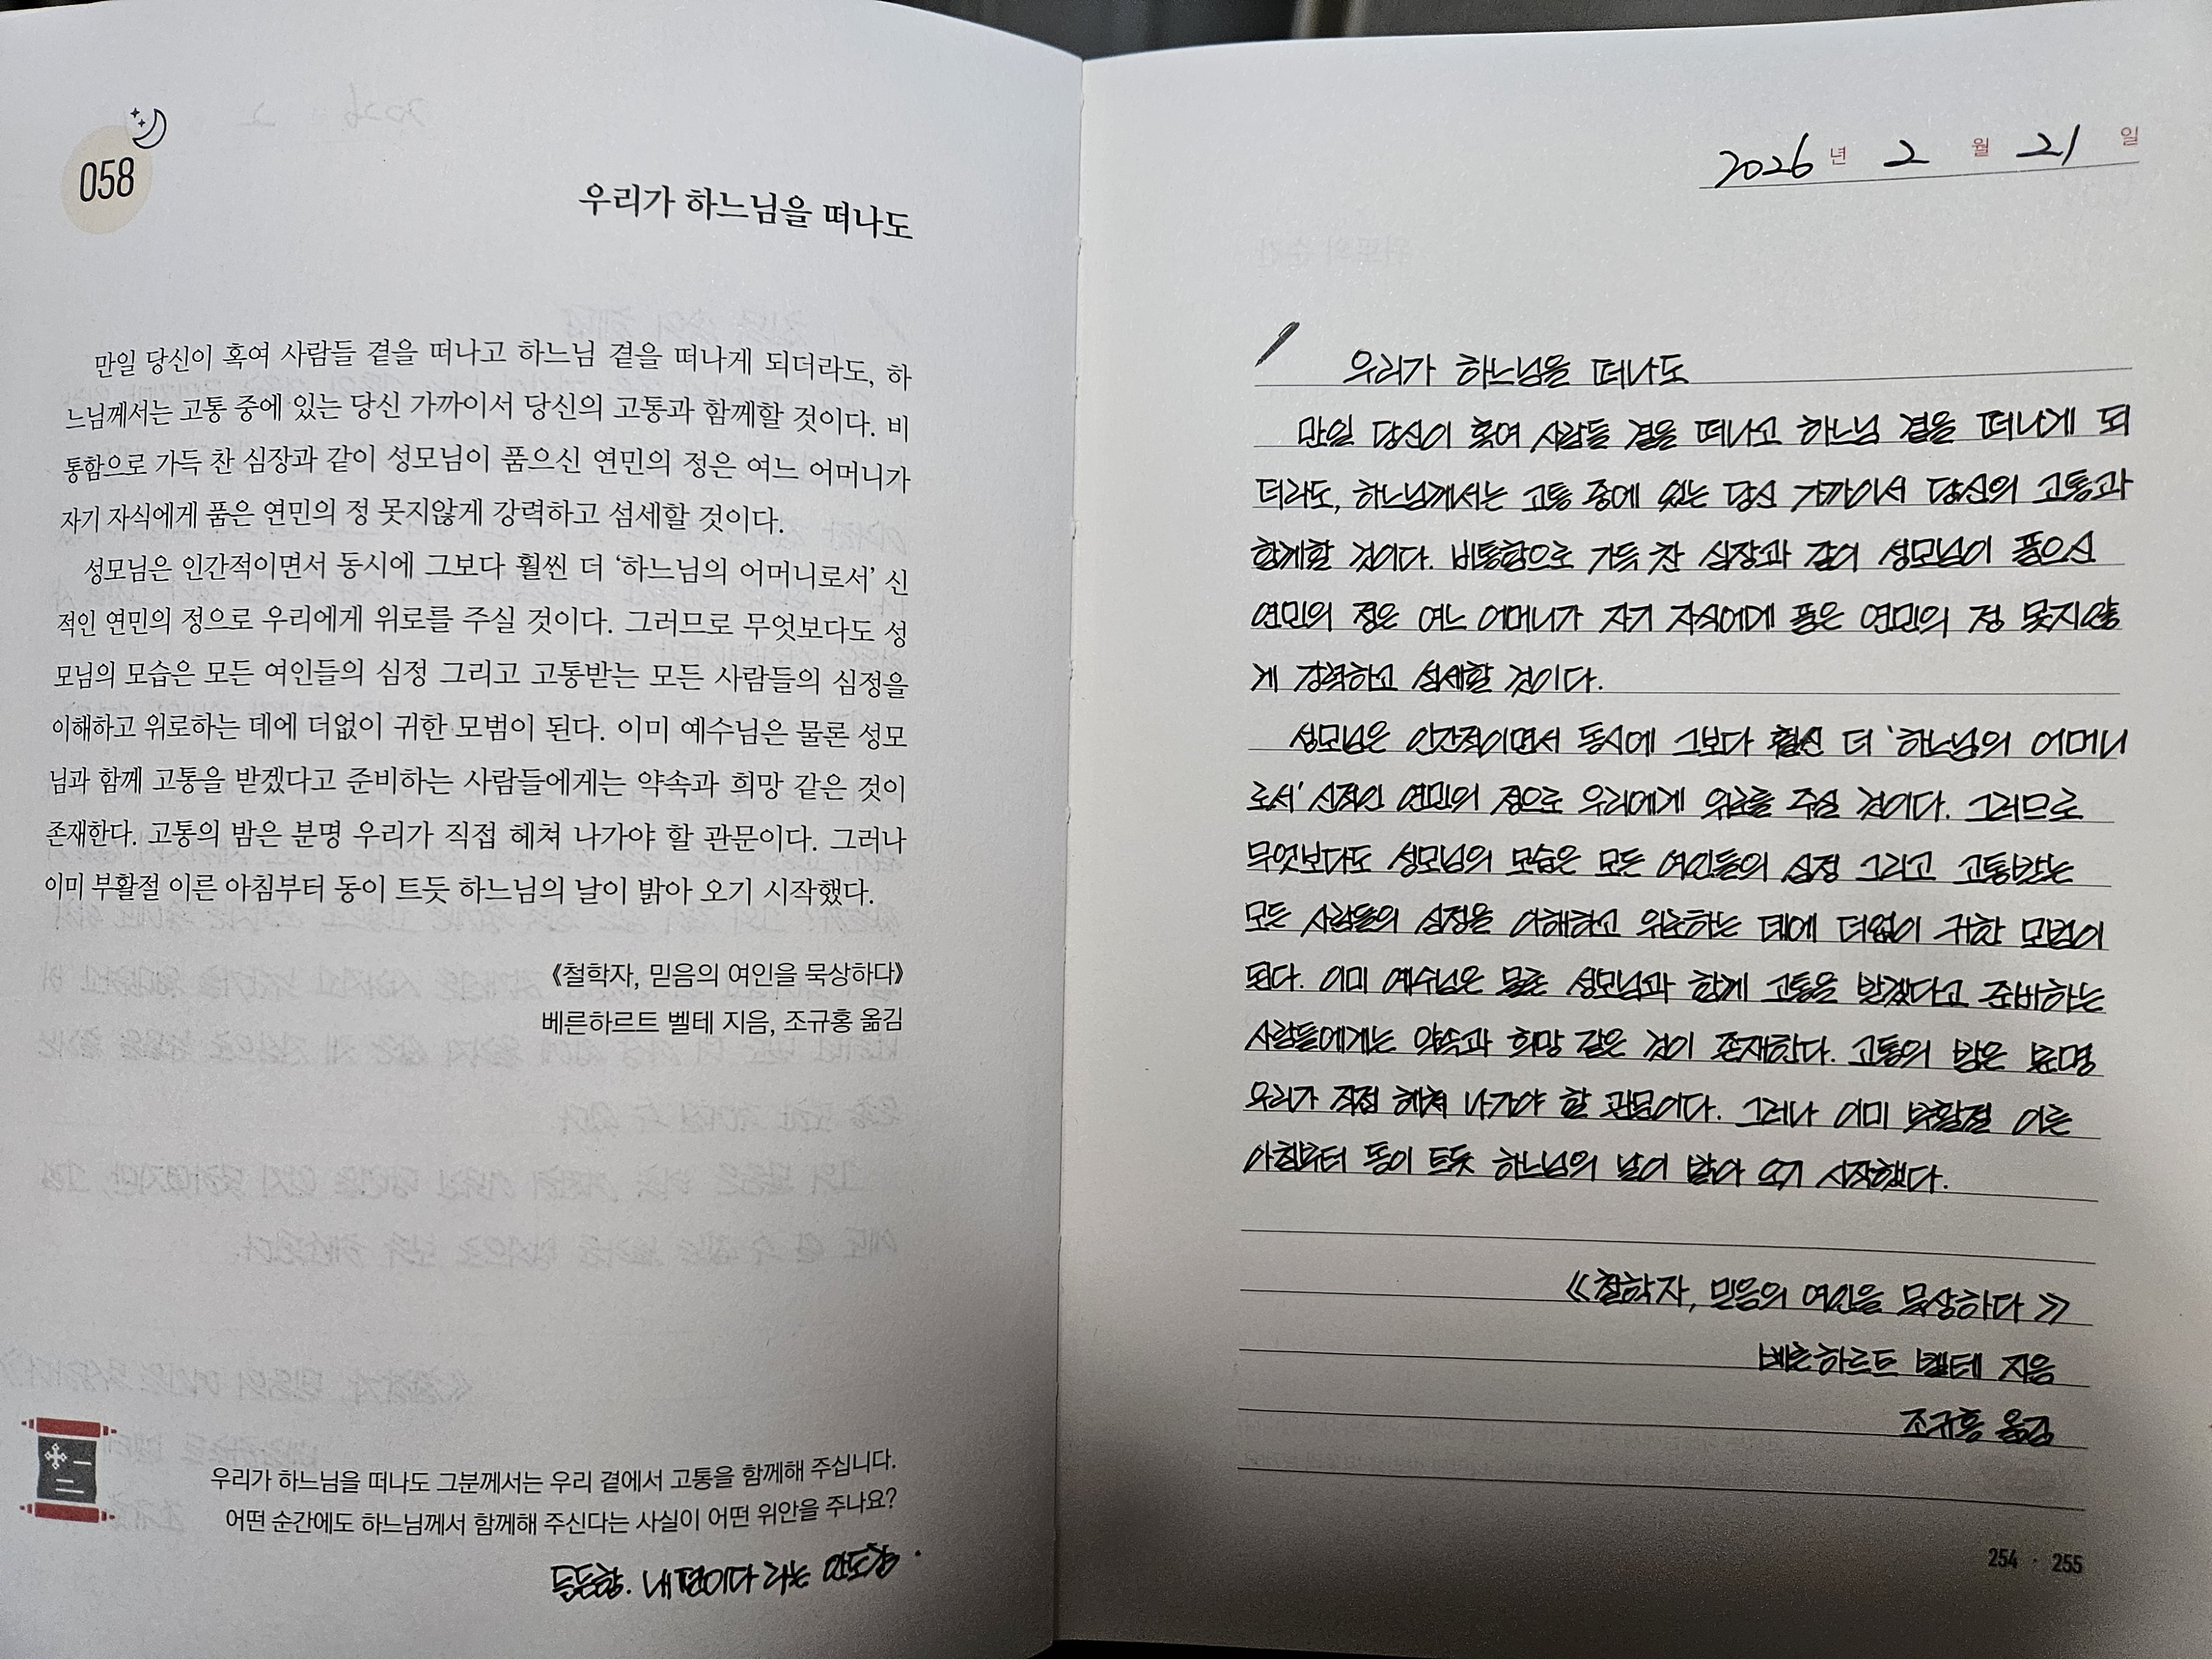 058
우리가 하느님을 떠나도
만일 당신이 혹여 사람들 곁을 떠나고 하느님 곁을 떠나게 되더라도, 하
느님께서는 고통 중에 있는 당신 가까이서 당신의 고통과 함께할 것이다. 비
통함으로 가득 찬 심장과 같이 성모님이 품으신 연민의 정은 여느 어머니가
자기 자식에게 품은 연민의 정 못지않게 강력하고 섬세할 것이다.
성모님은 인간적이면서 동시에 그보다 훨씬 더 ‘하느님의 어머니로서’ 신
적인 연민의 정으로 우리에게 위로를 주실 것이다. 그러므로 무엇보다도 성
모님의 모습은 모든 여인들의 심정 그리고 고통받는 모든 사람들의 심정을
이해하고 위로하는 데에 더없이 귀한 모범이 된다. 이미 예수님은 물론 성모
님과 함께 고통을 받겠다고 준비하는 사람들에게는 약속과 희망 같은 것이
존재한다. 고통의 밤은 분명 우리가 직접 헤쳐 나가야 할 관문이다. 그러나
이미 부활절 이른 아침부터 동이 트듯 하느님의 날이 밝아 오기 시작했다.
《철학자, 믿음의 여인을 묵상하다》
베른하르트 벨테 지음, 조규홍 옮김
우리가 하느님을 떠나도 그분께서는 우리 곁에서 고통을 함께해 주십니다.
어떤 순간에도 하느님께서 함께해 주신다는 사실이 어떤 위안을 주나요?
2026 년 2 월 21 일
우리가 하느님을 떠나도
만일 당신이 혹여 사람들 곁을 떠나고 하느님 곁을 떠나게 되
더라도, 하느님께서는 고통 중에 있는 당신 가까이서 당신의 고통과
함께할 것이다. 비통함으로 가득 찬 심장과 같이 성모님이 품으신
연민의 정은 여느 어머니가 자기 자식에게 품은 연민의 정 못지않
게 강력하고 섬세할 것이다.
성모님은 인간적이면서 동시에 그보다 훨씬 더 '하느님의 어머니
로서' 신적인 연민의 정으로 우리에게 위로를 주실 것이다. 그러므로
무엇보다도 성모님의 모습은 모든 여인들의 심정 그리고 고통받는
모든 사람들의 심정을 이해하고 위로하는 데에 더없이 귀한 모범이
된다. 이미 예수님은 물론 성모님과 함께 고통을 받겠다고 준비하는
사람들에게는 약속과 희망 같은 것이 존재한다. 고통의 밤은 분명
우리가 직접 헤쳐 나가야 할 관문이다. 그러나 이미 부활절 이른
아침부터 동이 트듯 하느님의 날이 밝아 오기 시작했다.
《철학자, 믿음의 여인을 묵상하다》
베른하르트 벨테 지음
조규홍 옮김
254 · 255